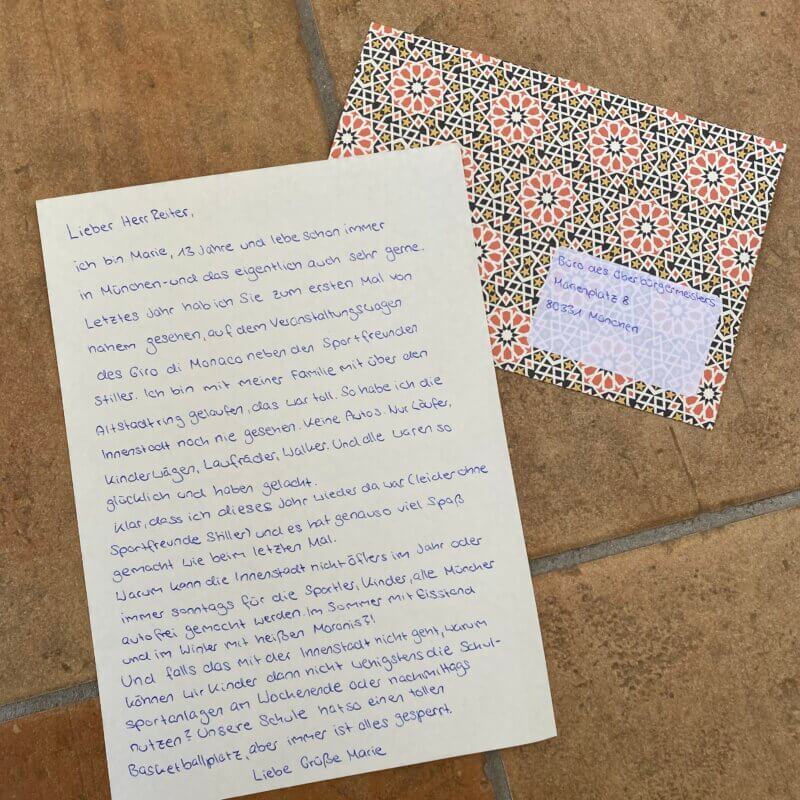 Lieber Herr Reiter,
ich bin Marie, 13 Jahre und lebe schon immer
in München - und das eigentlich auch sehr gerne.
Letztes Jahr hab ich Sie zum ersten Mal von
nahem gesehen, auf dem Veranstaltungswagen
des Giro di Monaco neben den Sportfreunden
Stiller. Ich bin mit meiner Familie mit über den
Altstadtring gelaufen, das war toll. So habe ich die
Innenstadt noch nie gesehen. Keine Autos. Nur Läufer,
Kinderwägen, Laufräder, Walker. Und alle waren so
glücklich und haben gelacht.
Klar, dass ich dieses Jahr wieder da war (leider ohne
Sportfreunde Stiller) und es hat genauso viel Spaß
gemacht wie beim letzten Mal.
Warum kann die Innenstadt nicht öfters im Jahr oder
immer sonntags für die Sportler, Kinder, alle Müncher
autofrei gemacht werden. Im Sommer mit Eisstand
und im Winter mit heißen Maronis?!
Und falls das mit der Innenstadt nicht geht, warum
können wir Kinder dann nicht wenigstens die Schul-
sportanlagen am Wochenende oder nachmittags
nutzen? Unsere Schule hat so einen tollen
Basketballplatz, aber immer ist alles gesperrt.
Liebe Grüße Marie
Büro des Oberbürgermeisters
Marienplatz 8
80331 München